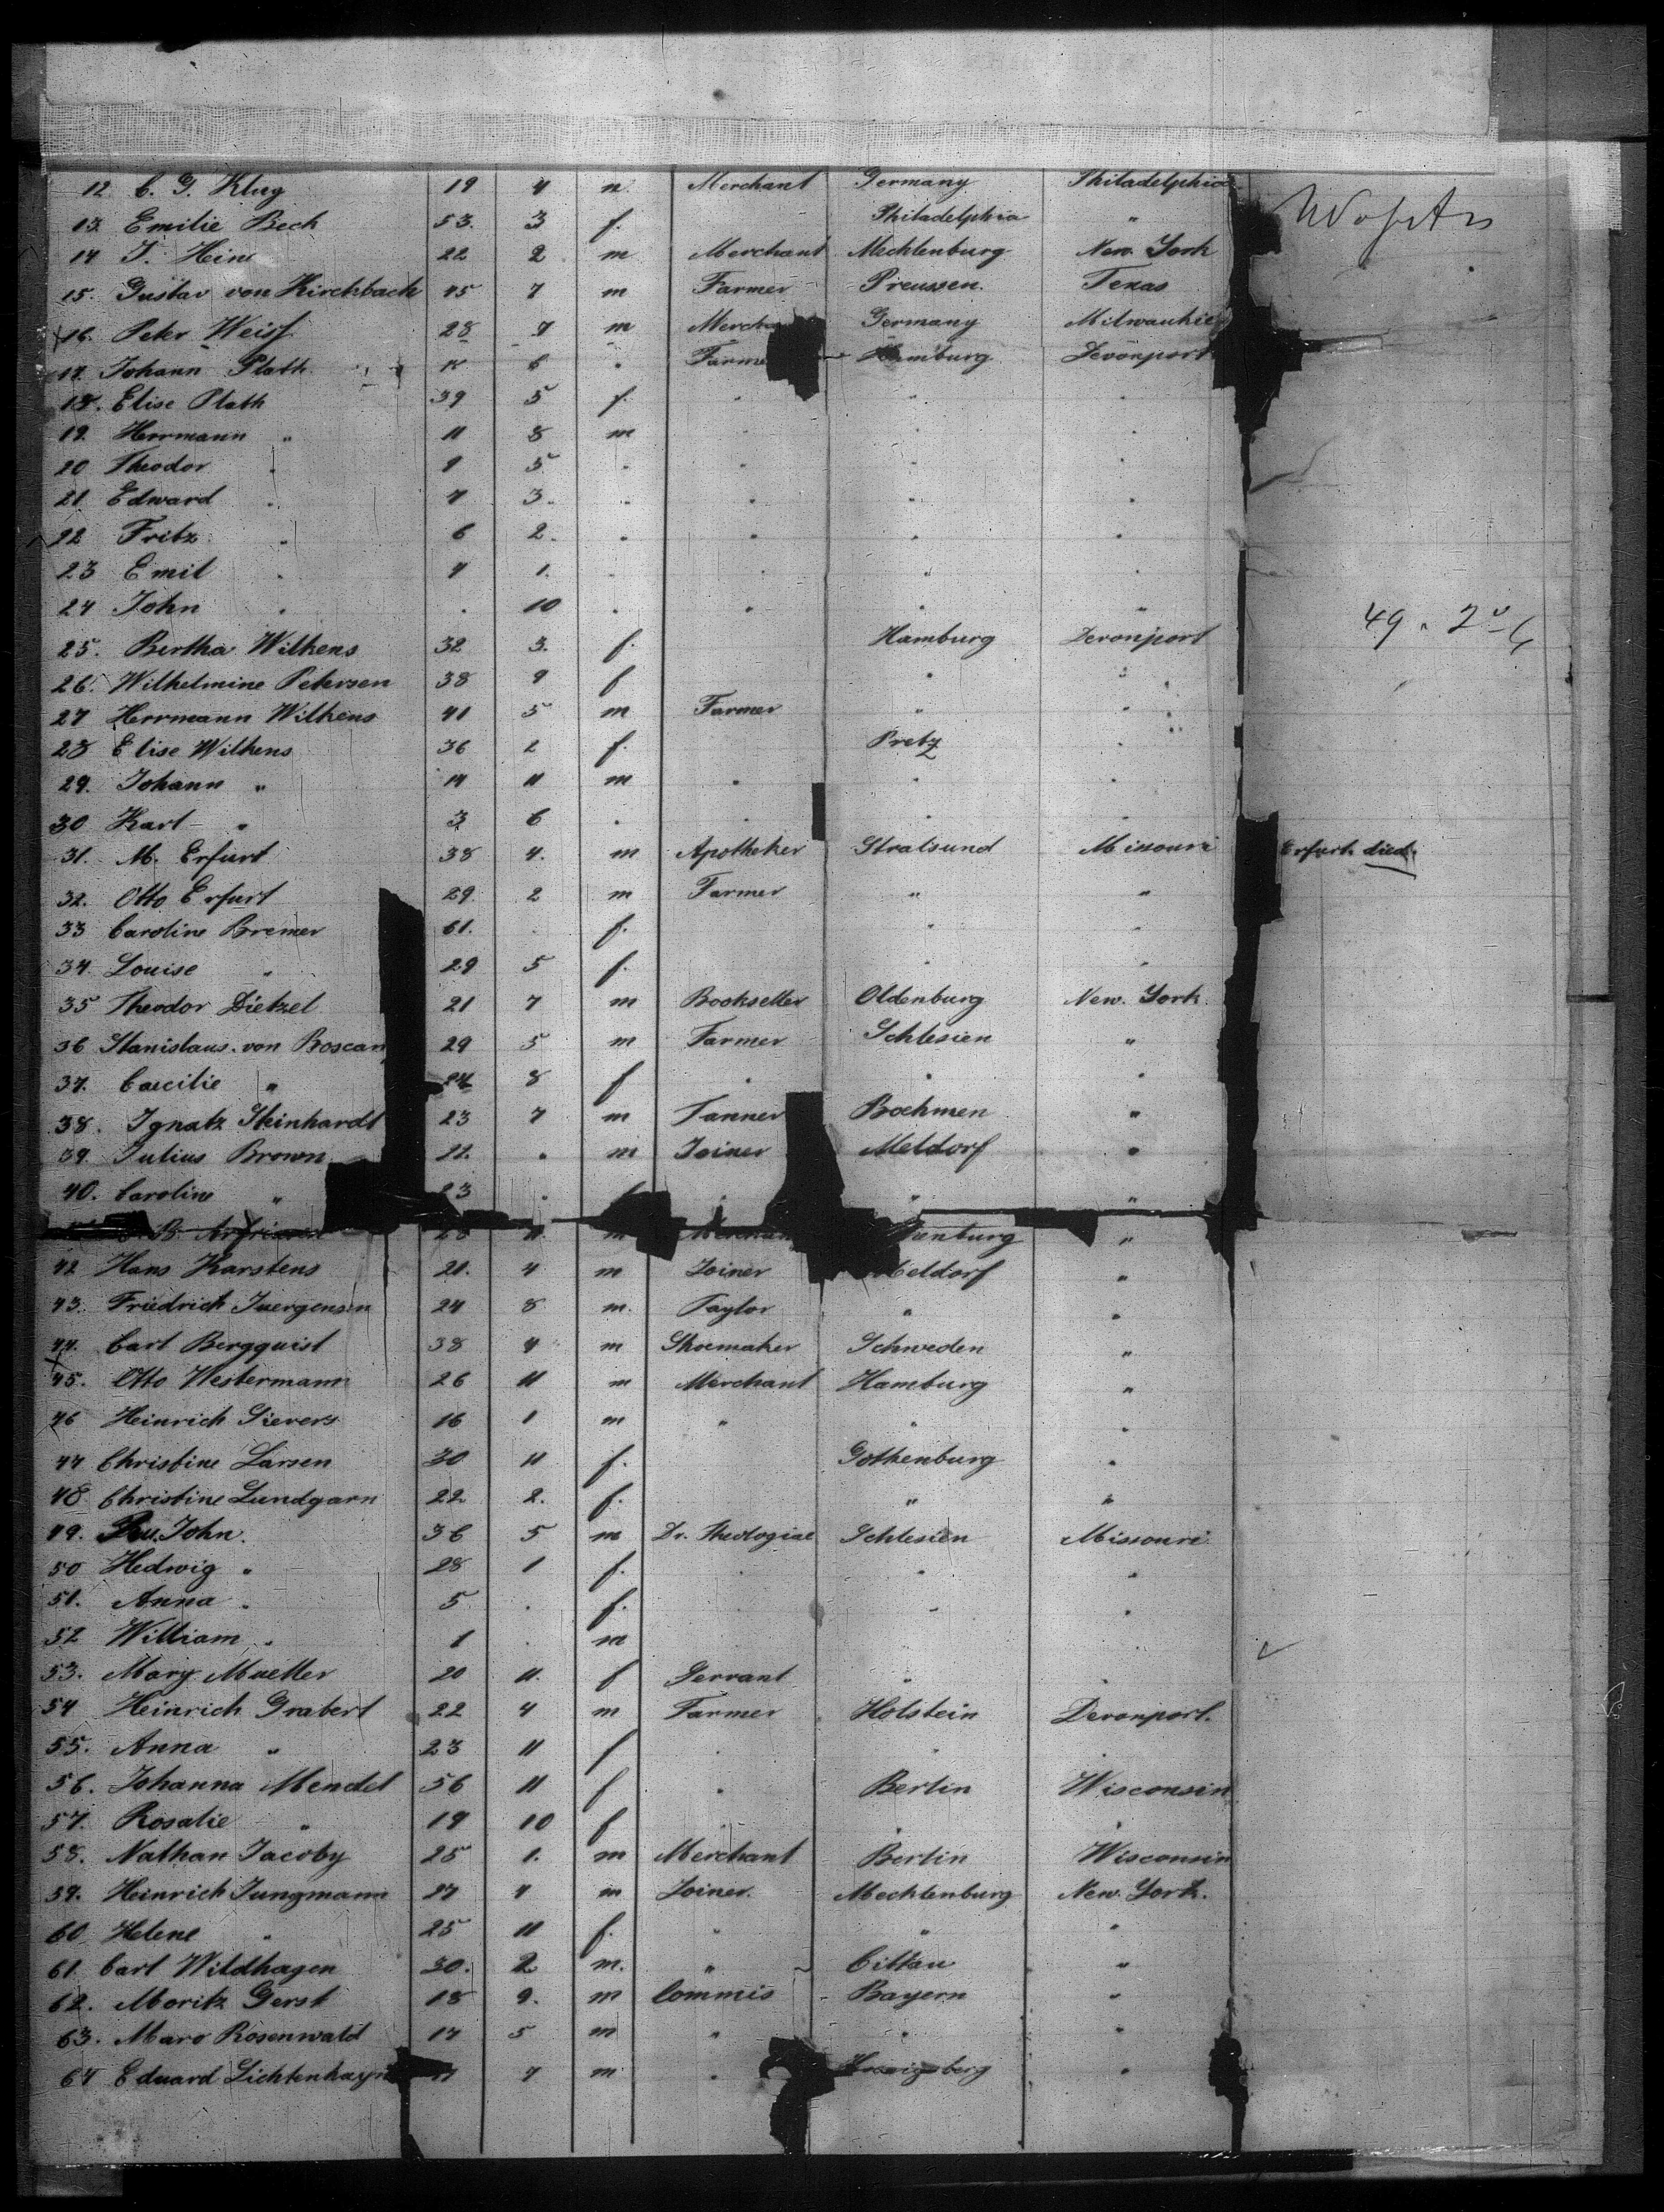 12 C. G. Klug 19 4 m Merchant Germany Philadelphia
13. Emilie Beck 53. 3 f. Philadelphia "
14 J. Hein 22 2 m Merchant Mecklenburg New York
15. Gustav von Kirchbach 45 7 m Farmer Preussen. Texas
16. Peter Weiss 28 7 m Merch Germany Milwaukie
17. Johann Plath 6 " Farme Hamburg Devonport
18. Elise Plath 39 5 f. " " "
19. Herrmann " 11 8 m " " "
20 Theodor " 9 5 " " " "
21. Edward " 7 3. " " " "
22 Fritz " 6 2. " " " "
23 Emil " 4 1. " " " "
24 John " . 10 " " " "
25. Bertha Wilkens 32 3. f. Hamburg Devonport
26. Wilhelmine Petersen 38 9 f " "
27 Herrmann Wilkens 41 5 m Farmer " "
28 Elise Wilkens 36 2 f. Pretz "
29. Johann " 14 11 m " " "
30 Karl " 3 6 " " " "
31. M. Erfurt 38 4. m Apotheker Stralsund Missouri Erfurt died.
32. Otto Erfurt 29. 2 m Farmer " "
33 Caroline Bremer 61. . f. " "
34. Louise " 29 5 f. " "
35 Theodor Dietzel 21 7 m Bookseller Oldenburg New. York.
36 Stanislaus von Boscan 29 5 m Farmer Schlesien "
37. Caecilie " 24 8 f " " "
38. Ignatz Steinhardt 23 7 m Tanner Boehmen "
39. Julius Brown 22. . m Joiner Meldorf "
40. Caroline " 23 . " " "
11. m Merchan enburg "
42 Hans Karstens 21. 4 m Joiner Meldorf "
43. Friedrich Juergensen 24 8 m. Taylor " "
44. Carl Bergquist 38 4 m Shoemaker Schweden "
45. Otto Westermann 26 11 m Merchant Hamburg "
46 Heinrich Sievers 16 1 m " " "
47 Christine Larsen 30 11 f. Gothenburg "
48 Christine Lundgarn 22 2. f. " "
49. John. 36 5 m Dr. Theologiae Schlesien Missouri
50 Hedwig " 28 1 f. " " "
51. Anna " 5 . f. " " "
52 William " 1 . m
53. Mary Mueller 20 11. f Servant " "
54 Heinrich Grabert 22 4 m Farmer Holstein Devonport.
55. Anna " 23 11 f " " "
56. Johanna Mendel 56 11 f " Berlin Wisconsin
57. Rosalie " 19 10 f " " "
58. Nathan Jacoby 25 1. m Merchant Berlin Wisconsin
59. Heinrich Jungmann 27 4 m Joiner. Mecklenburg New. York.
60 Helene " 25 11 f. " " "
61. Carl Wildhagen 30. 2 m. " Cittau "
62. Moritz Gerst 18 9. m Commis Bayern "
63. Marc Rosenwald 17 5 m " " "
64 Eduard Lichtenhayn 7 m " "